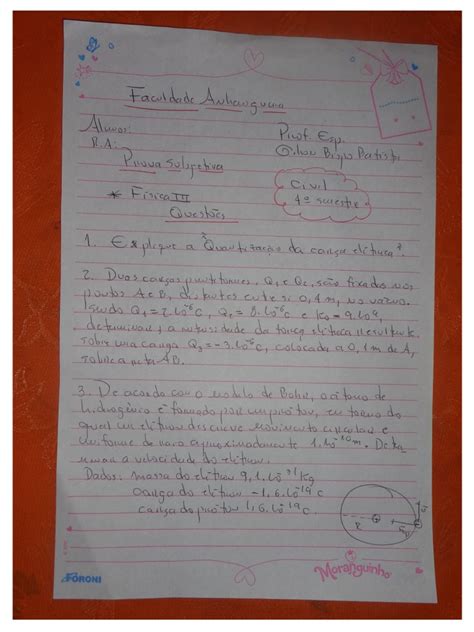 Faculdade Anhanguera
Aluno:
R.A:
Prof. Esp.
Gilson Batista
Prova Substitutiva
Civil
4º semestre
* Física III
Questões
1. Explique a "Quantização da carga elétrica".
2. Duas cargas puntiformes, Q1 e Q2, são fixadas nos
pontos A e B, distantes entre si 0,4 m, no vácuo.
Sendo Q1 = 2.10⁻⁶C, Q2 = 8.10⁻⁶C e K0 = 9.10⁹,
determinar, a intensidade da força elétrica resultante
sobre uma carga Q3 = -3.10⁻⁶C, colocada a 0,1 m de A,
sobre a reta AB.
3. De acordo com o modelo de Bohr, o átomo de
hidrogênio é formado por um próton, em torno do
qual um elétron descreve movimento circular e
uniforme de raio aproximadamente 1.10⁻¹⁰m. Deter
mine a velocidade do elétron.
Dados: massa do elétron 9,1.10⁻³¹Kg
carga do elétron -1,6.10⁻¹⁹C
carga do próton 1,6.10⁻¹⁹C
R
FORONI
Moranguinho